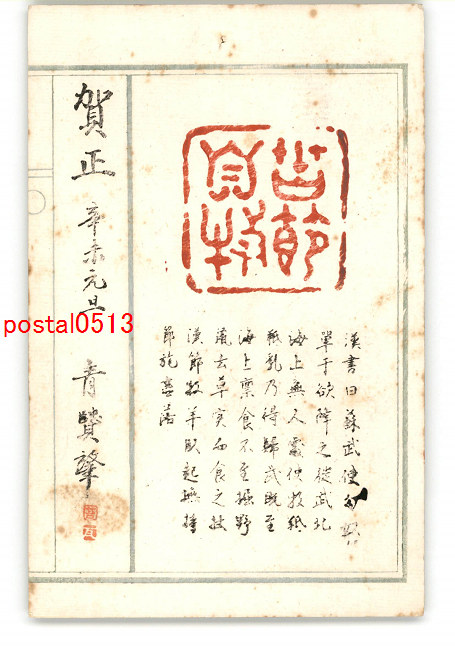 苦節
自牧
漢書曰蘇武使匈奴
單于欲降之徙武北
海上無人處使牧羝
羝乳乃得歸武既至
海上廩食不至掘野
鼠去草實而食之杖
漢節牧羊臥起操持
節旄盡落
賀正 辛未元旦
postal0513